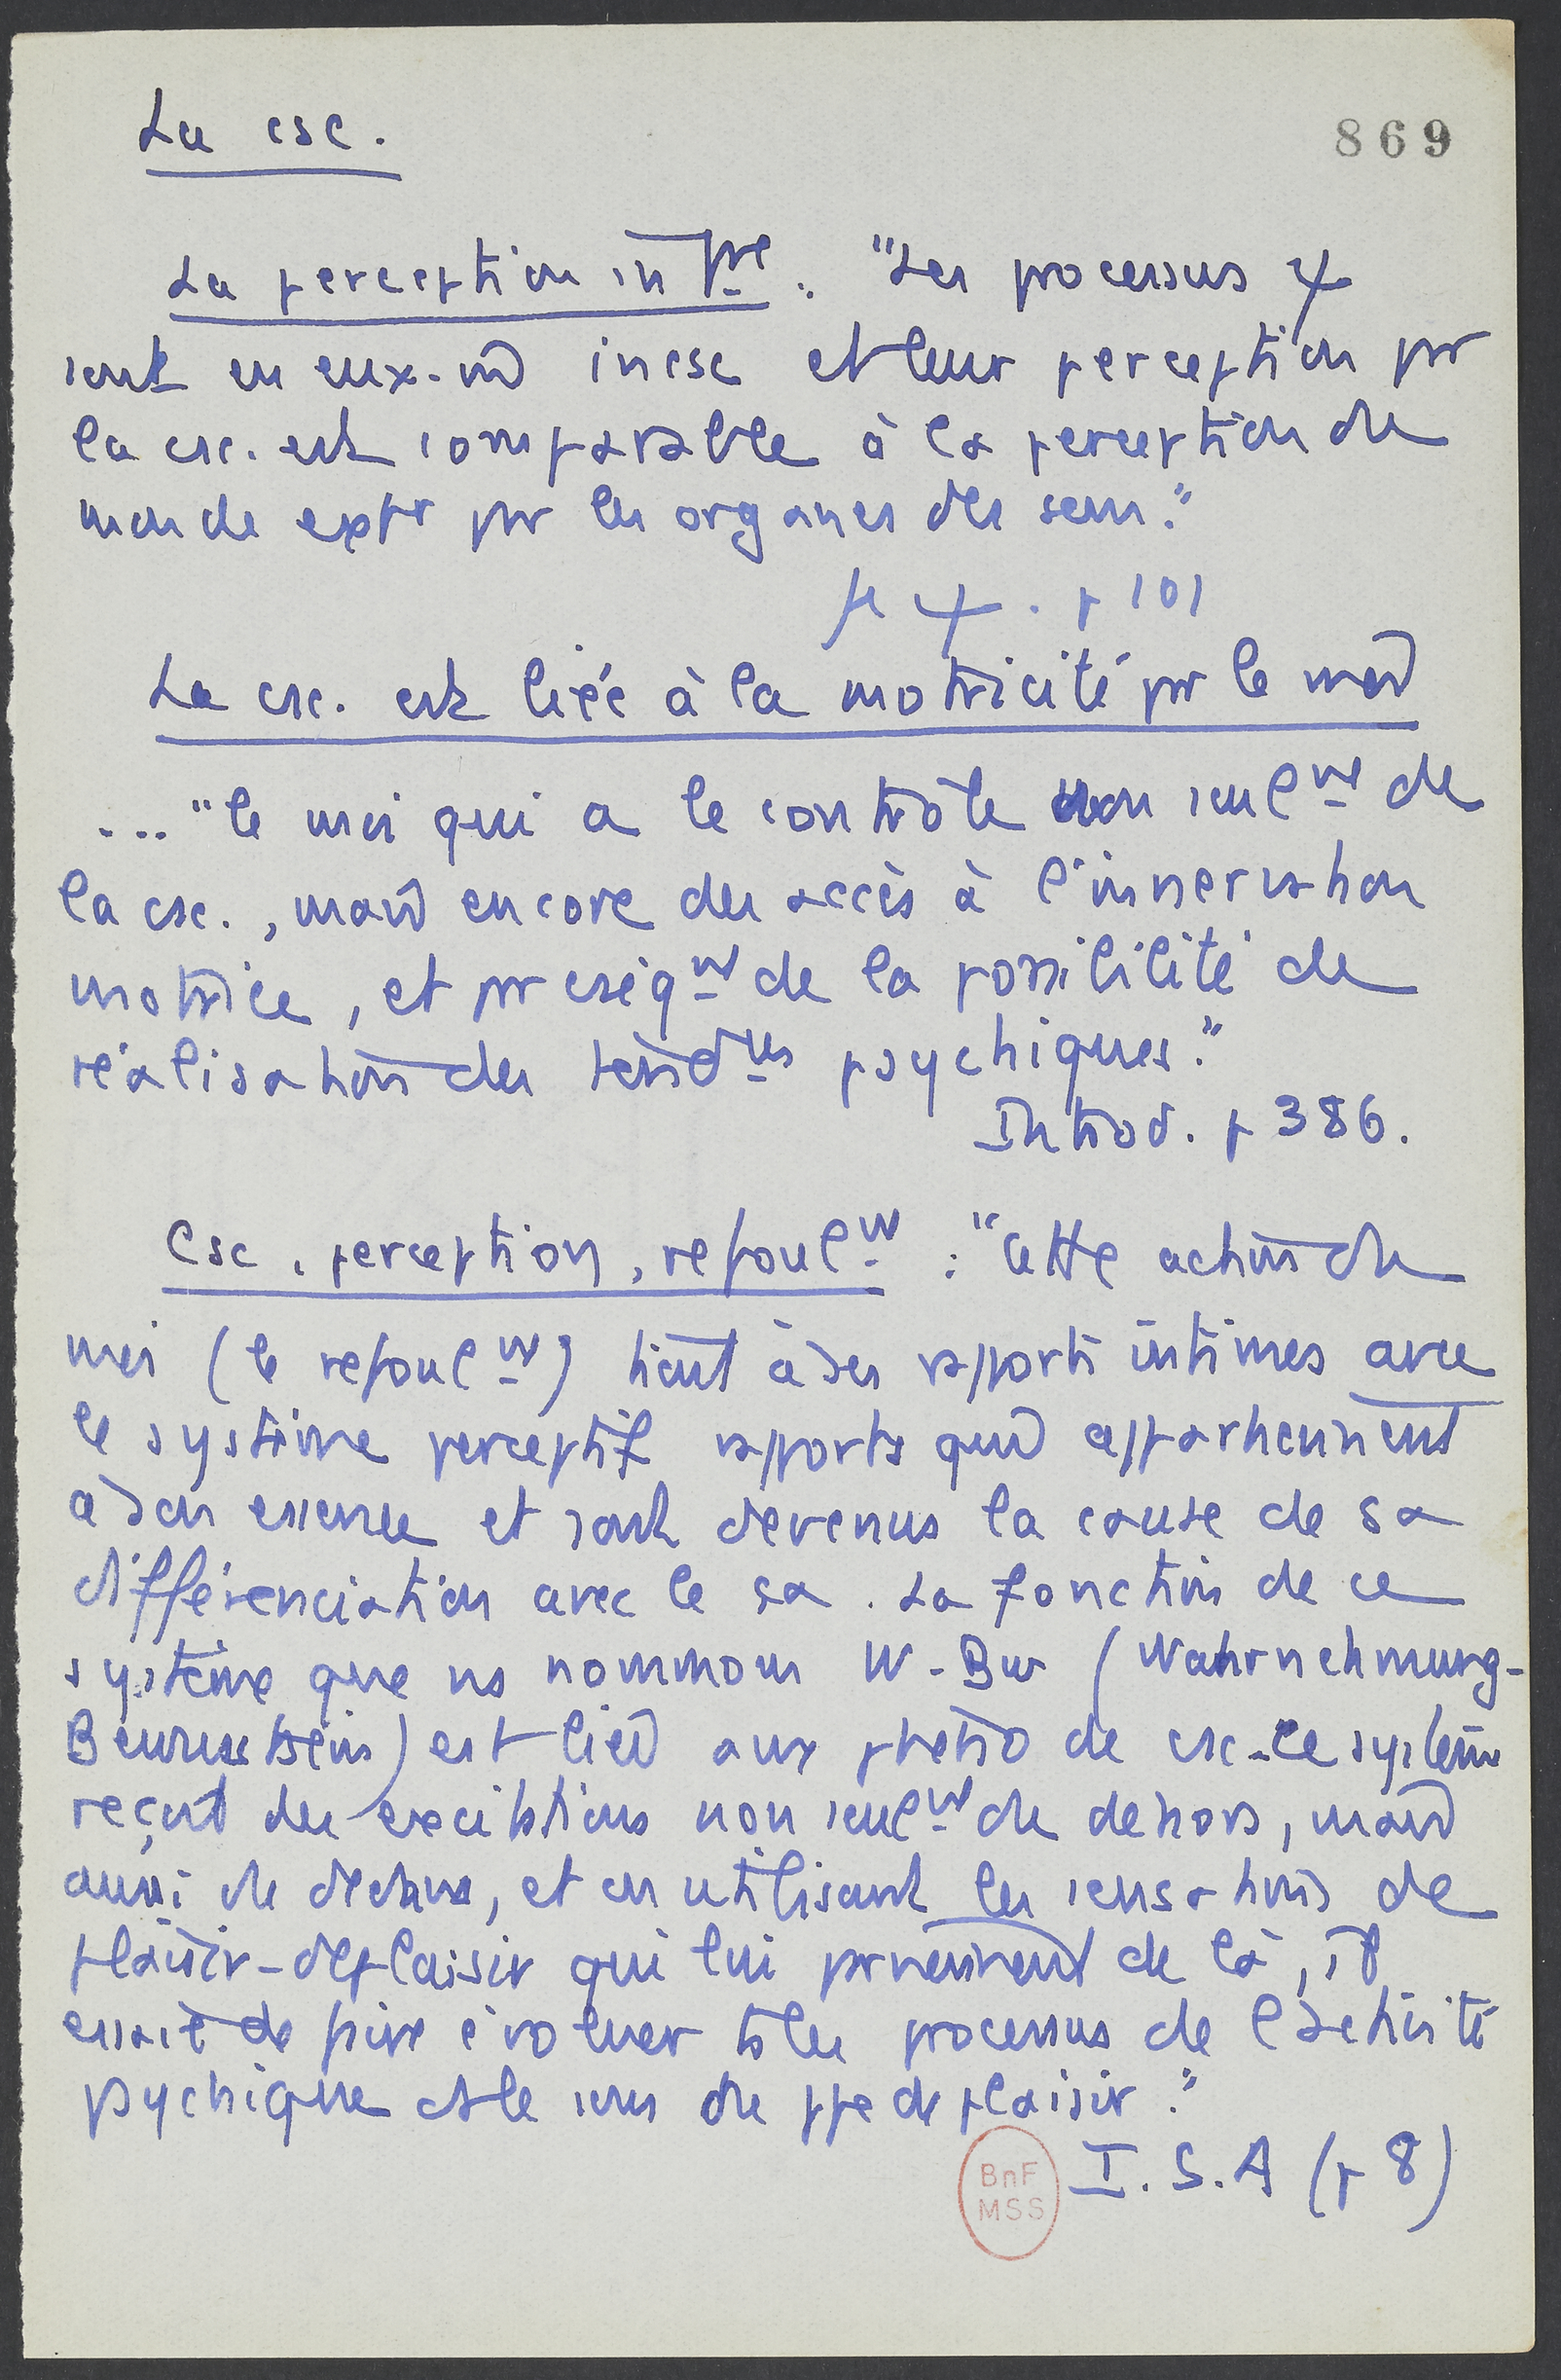 La csc.
869
La perception intre : "Les processus ψ
sont en eux-m̂ incsc et leur perception pr
la csc. est comparable à la perception du
monde extr pr les organes des sens."
ψ. p 101
La csc. est liée à la motricité pr le moi
... "le moi qui a le contrôle non seulmt de
la csc., mais encore des accès à l'innervation
motrice, et pr cséqt de la possibilité de
réalisation des tendces psychiques."
Introd. p 386.
Csc, perception, refoulmt : "Cette action du
moi (le refoulmt) tient à ses rapports intimes avec
le système perceptif rapports qui appartiennent
à son essence et sont devenus la cause de sa
différenciation avec le ça. La fonction de ce
système que ns nommons W-Bw (Wahrnehmung-
Bewusstsein) est liée aux phéno de csc. Ce système
reçoit des excitations non seulmt du dehors, mais
aussi du dedans, et en utilisant les sensations de
plaisir-déplaisir qui lui proviennent de là, il
essaie de faire évoluer ts les processus de l'activité
psychique ds le sens du ppe de plaisir."
I.S.A (p 8)
BnF
MSS